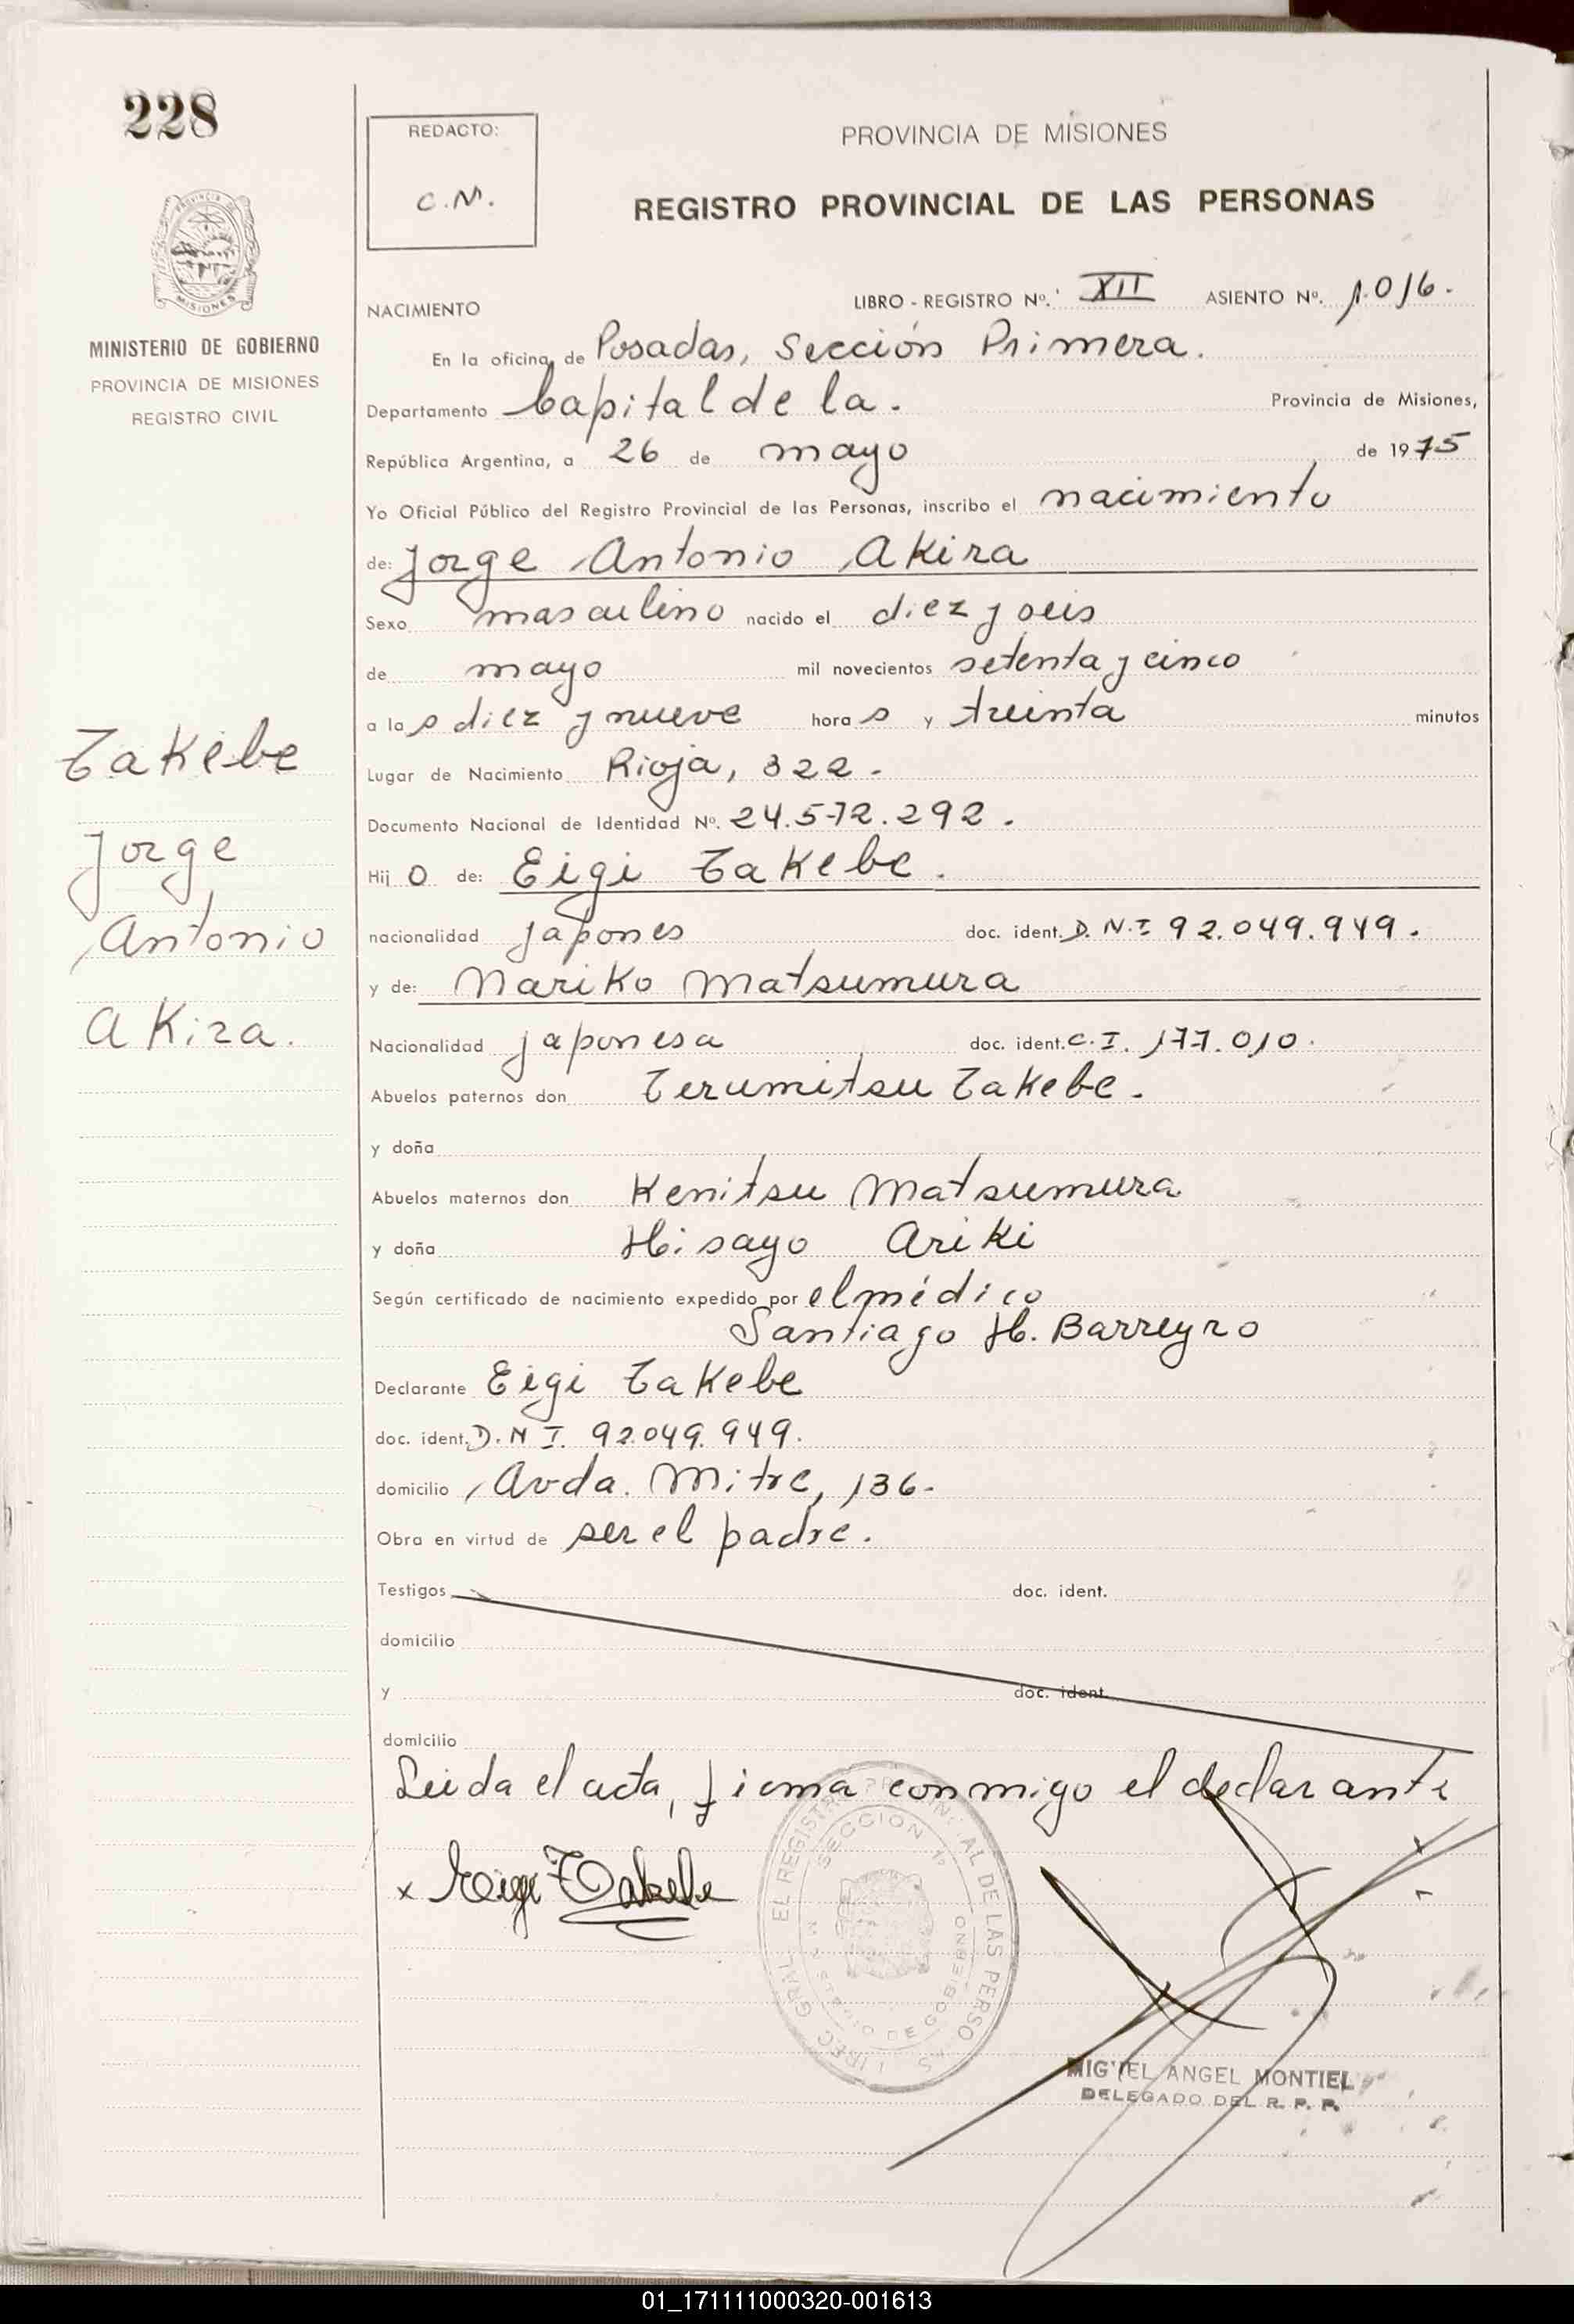 228
REDACTO:
C.M.
PROVINCIA DE MISIONES
REGISTRO PROVINCIAL DE LAS PERSONAS
PROVINCIA DE
MISIONES
MINISTERIO DE GOBIERNO
PROVINCIA DE MISIONES
REGISTRO CIVIL
NACIMIENTO LIBRO - REGISTRO Nº. XII ASIENTO Nº. 1.016.
En la oficina de Posadas, Sección Primera.
Departamento Capital de la. Provincia de Misiones,
República Argentina, a 26 de mayo de 1975
Yo Oficial Público del Registro Provincial de las Personas, inscribo el nacimiento
de: Jorge Antonio Akira
Sexo masculino nacido el diez y seis
de mayo mil novecientos setenta y cinco
a las diez y nueve horas y treinta minutos
Lugar de Nacimiento Rioja, 322.
Documento Nacional de Identidad Nº. 24.572.292.
Hijo de: Eigi Takebe.
nacionalidad japones doc. ident. D.N.I 92.049.949.
y de: Mariko Matsumura
Nacionalidad japonesa doc. ident. C.I. 177.010.
Abuelos paternos don Terumitsu Takebe.
y doña
Abuelos maternos don Kenitsu Matsumura
y doña Hisayo Ariki
Según certificado de nacimiento expedido por el médico
Santiago H. Barreyro
Declarante Eigi Takebe
doc. ident. D.N I. 92.049.949.
domicilio Avda. Mitre, 136.
Obra en virtud de ser el padre.
Testigos doc. ident.
domicilio
y doc. ident.
domicilio
Leida el acta, firma conmigo el declarante
x Eigi Takebe
SECCION 1ª
MIGUEL ANGEL MONTIEL
DELEGADO DEL R. P. P.
Takebe
Jorge
Antonio
Akira.
01_171111000320-001613